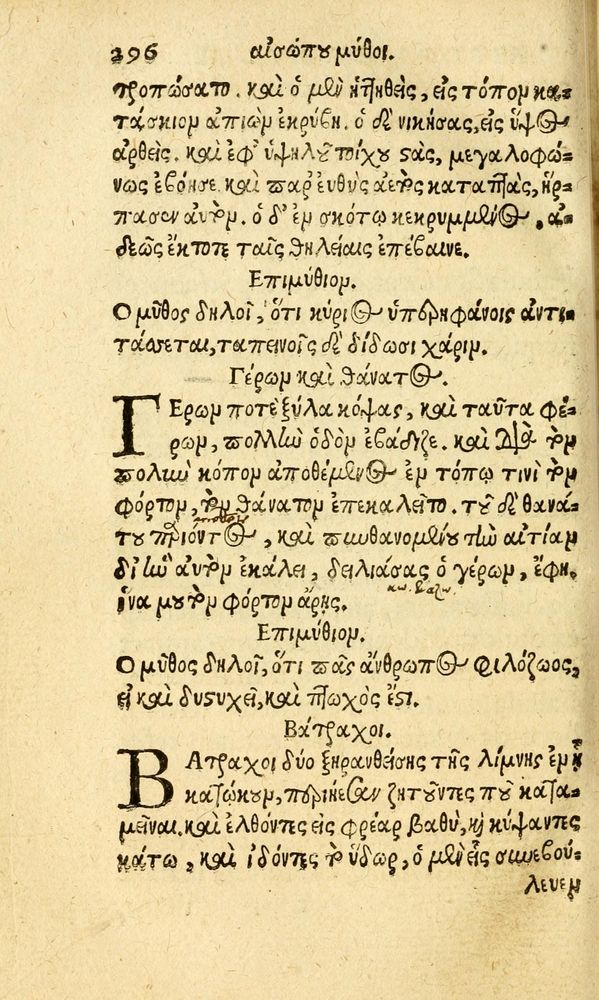 296 αἰσώπου μῦθοι.
τροπώσατο. καὶ ὁ μὲν ἡττηθεὶς, εἰς τόπον κα-
τάσκιον ἀπιὼν ἐκρύβη. ὁ δὲ νικήσας, εἰς ὕψος
ἀρθεὶς. καὶ ἐφ' ὑψηλοῦ τοίχου στὰς, μεγαλοφώ-
νως ἐβόησε. καὶ παρευθὺς ἀετὸς καταπτὰς, ἥρ-
πασεν αὐτόν. ὁ δ' ἐν σκότῳ κεκρυμμένος, ἀ-
δεῶς ἔκτοτε ταῖς θηλείαις ἐπέβαινε.
Επιμύθιον.
Ο μῦθος δηλοῖ, ὅτι κύριος ὑπερηφάνοις ἀντι-
τάσσεται, ταπεινοῖς δὲ δίδωσι χάριν.
Γέρων καὶ θάνατος.
ΓΕρων ποτὲ ξύλα κόψας, καὶ ταῦτα φέ-
ρων, πολλὴν ὁδὸν ἐβάδιζε. καὶ διὰ τὸν
πολὺν κόπον ἀποθέμενος ἐν τόπῳ τινὶ τὸν
φόρτον, τὸν θάνατον ἐπεκαλεῖτο. τοῦ δὲ θανά-
του παριόντος, καὶ πυνθανομένου τὴν αἰτίαν
δι' ἣν αὐτὸν ἐκάλει, δειλιάσας ὁ γέρων, ἔφη,
ἵνα μου τὸν φόρτον ἄρῃς.
Επιμύθιον.
Ο μῦθος δηλοῖ, ὅτι πᾶς ἄνθρωπος φιλόζωος,
εἰ καὶ δυστυχεῖ, καὶ πτωχός ἐστι.
Βάτραχοι.
ΒΑτραχοι δύο ξηρανθείσης τῆς λίμνης ἐν ᾗ
κατῴκουν, περιῄεσαν ζητοῦντες ποῦ κατα-
μεῖναι. καὶ ἐλθόντες εἰς φρέαρ βαθὺ, καὶ κύψαντες
κάτω, καὶ ἰδόντες τὸ ὕδωρ, ὁ μὲν εἷς συνεβού-
λευεν